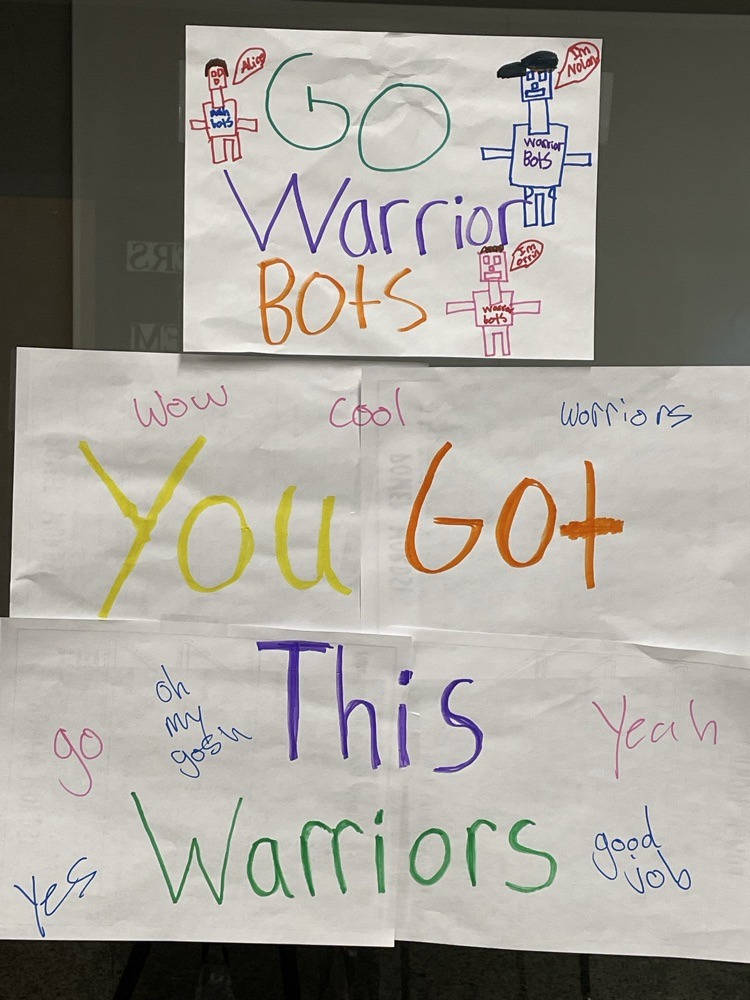 GO
Alice
I'm Nolan
Warrior
Bots
Warrior
BOtS
I'm
Warrior
bots
Wow cool worriors
You GOt
This
oh
my
gosh
go
Yeah
Warriors
good
job
Yes